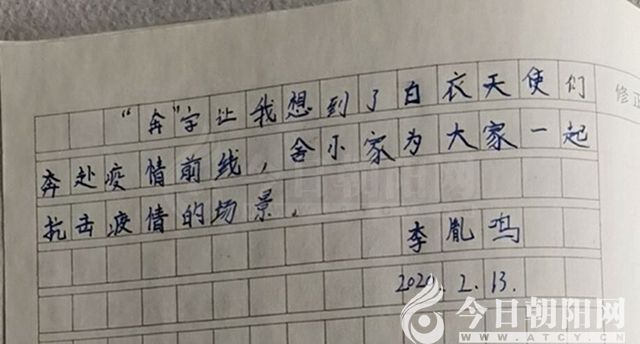 “奔”字让我想到了白衣天使们
奔赴疫情前线，舍小家为大家一起
抗击疫情的场景。
李胤鸣
2020.2.13.
修正
今日朝阳网
今日朝阳网
WWW.ATCY.CN